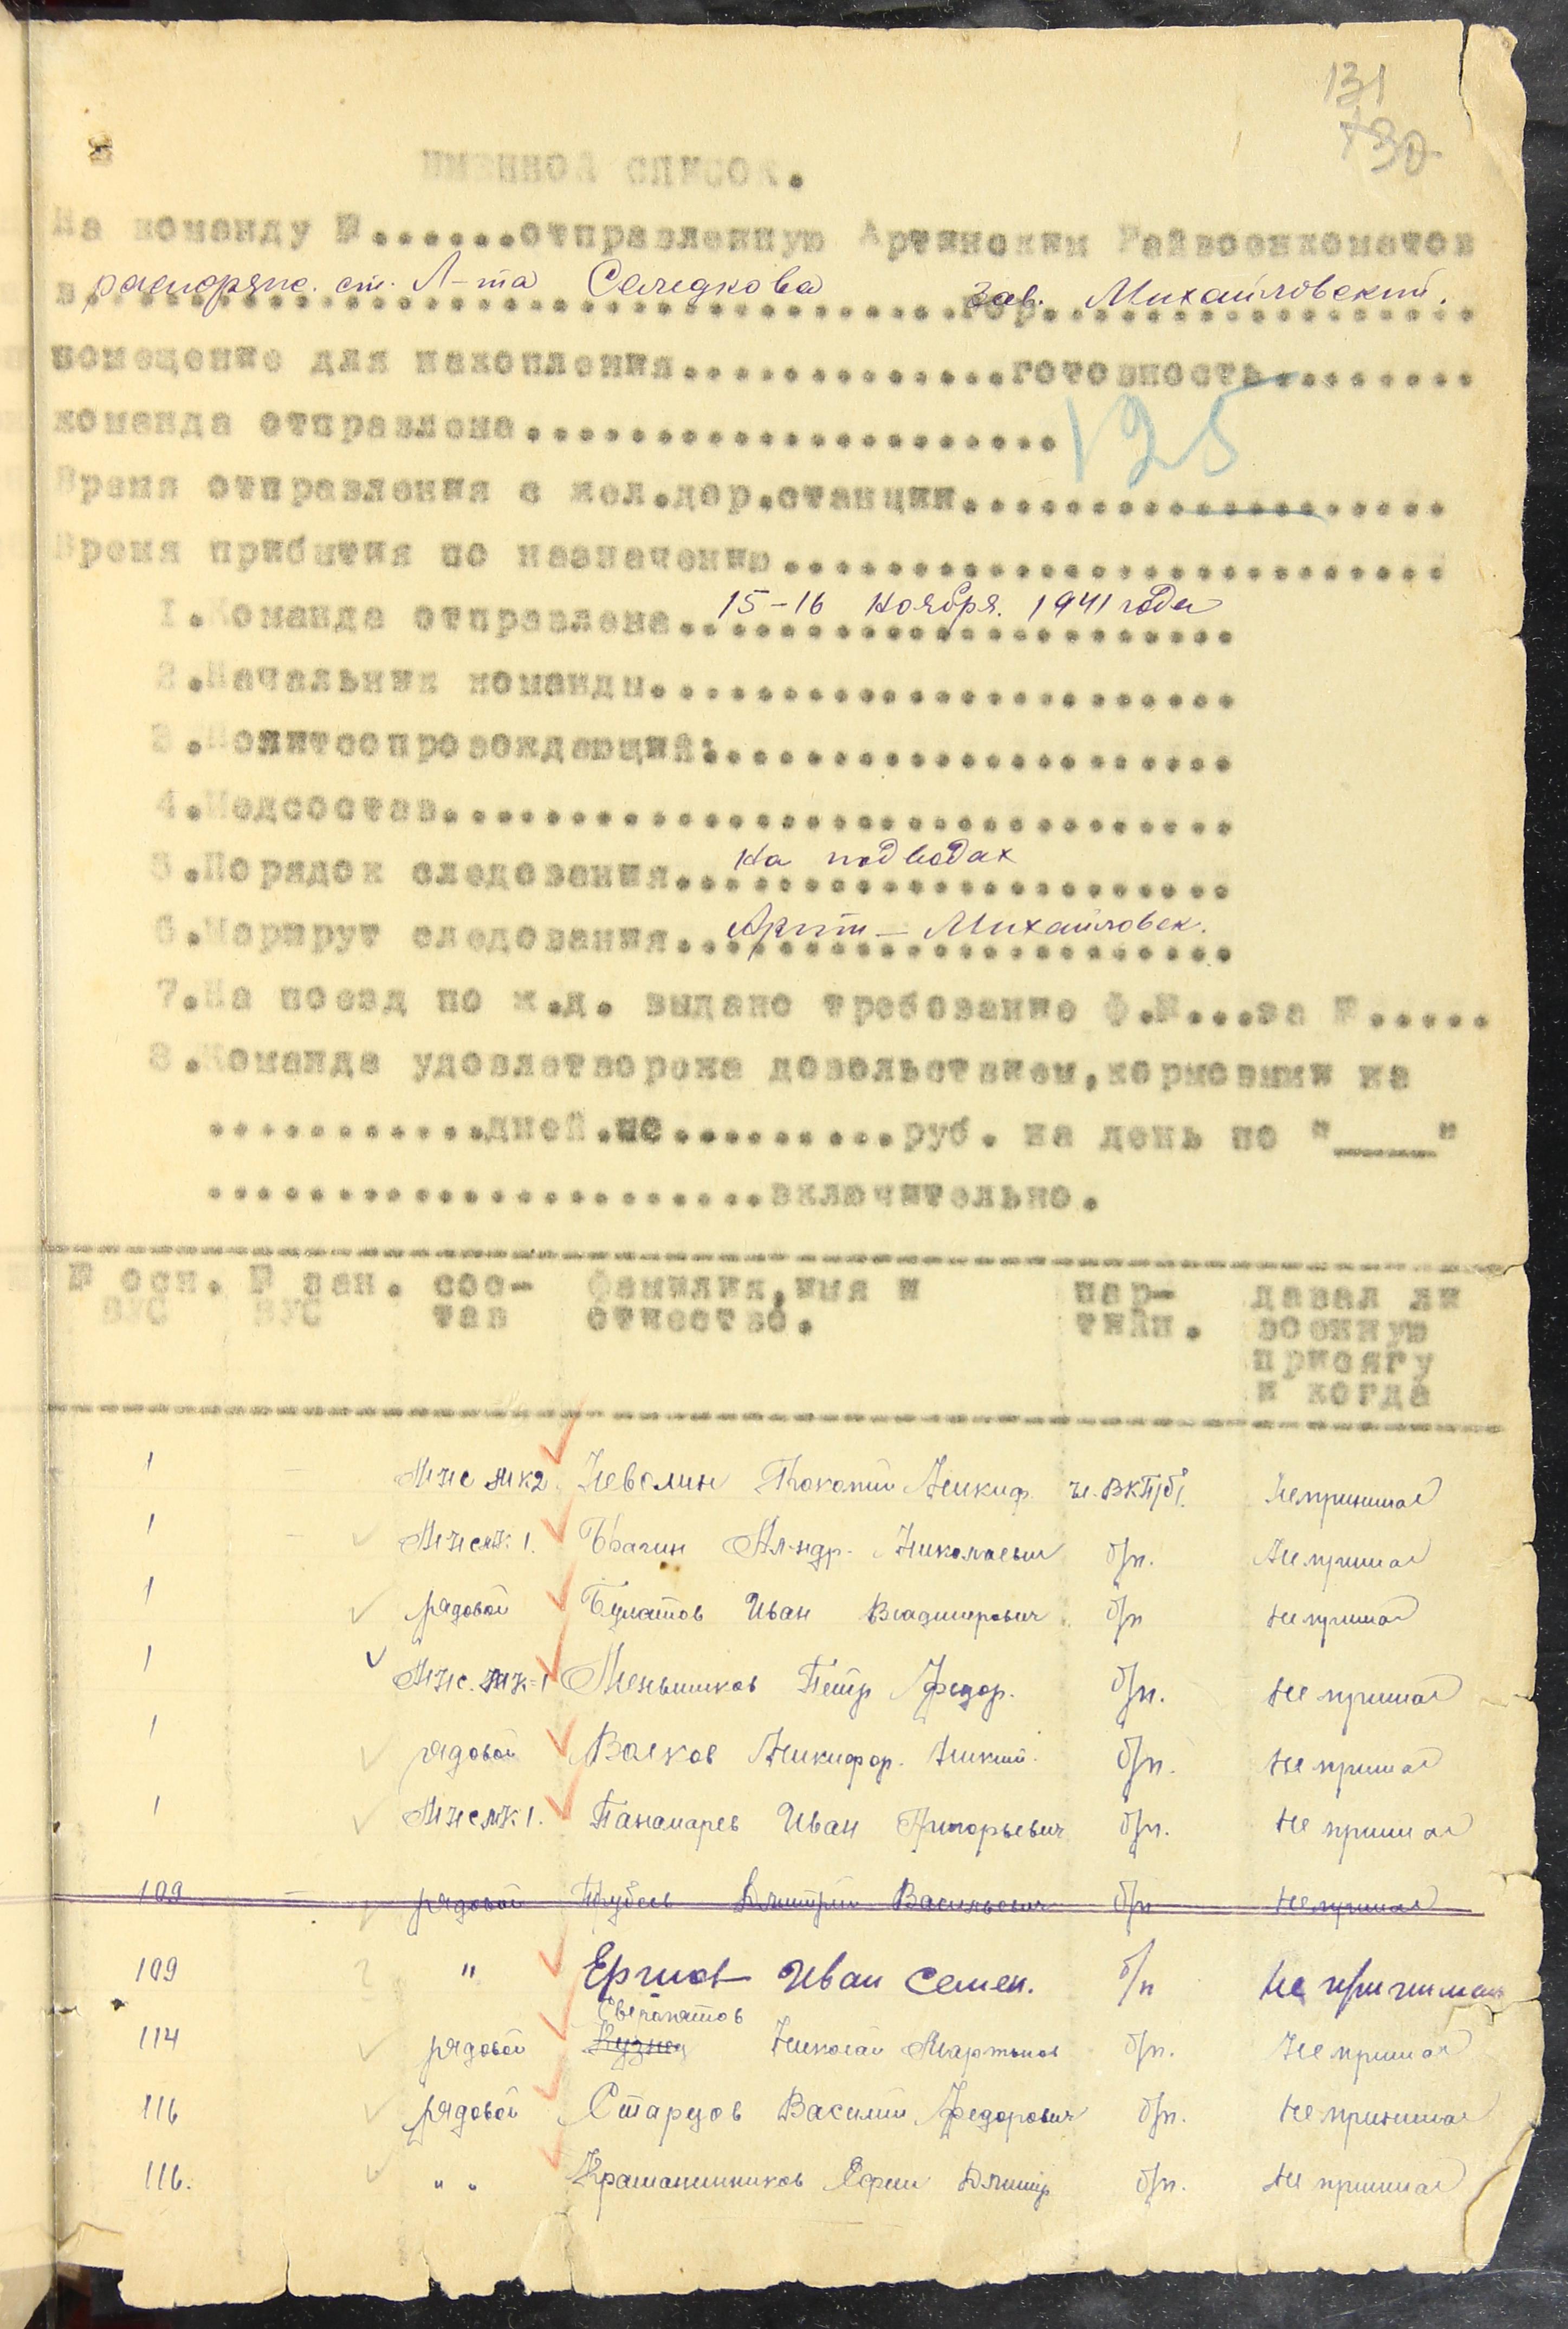 131
130
ИМЕННОЙ СПИСОК.
На команду №.......отправленную Артинским Райвоенкоматом
в распоряж. ст. Л-та Селедкова гор. Зав. Михайловский.
помещение для накопления.............готовность........
125
команда отправлена.....................
Время отправления с жел.дор.станции...................
Время прибытия по назначению..........................
1.Команда отправлена 15-16 Ноября. 1941 года
2.Начальник команды.......................
3.Политсопровождающий:....................
4.Медсостав...............................
5.Порядок следования На подводах
6.Маршрут следования Арти – Михайловск.
7.На поезд по ж.д. выдано требование ф.№...за №.....
8.Команда удовлетворена довольствием,кормовыми на
...........дней.по.........руб. на день по "____"
......................включительно.
№ осн. ВУС № зап. ВУС сос-тав Фамилия,имя и отчество. пар-тийн. давал ли военную присягу и когда
1 – МНС МК2 Неволин Прокопий Никиф. чл. ВКП/б/. Не принимал
1 – МНС МК 1. Ал-ндр. Николаевич б/п. Не принимал
1 рядовой Булатов Иван Владимирович б/п Не принимал
1 МНС. МК-1 Меньшиков Петр Федор. б/п. Не принимал
1 рядовой Волков Никифор. Никит. б/п. Не принимал
1 МНС МК 1. Панамарев Иван Григорьевич б/п. Не принимал
109 – рядовой Дмитрий Васильевич б/п Не принимал
109 " Ершов Иван Семен. б/п Не принимал
114 рядовой Николай Мартынов б/п. Не принимал
116 рядовой Старцов Василий Федорович б/п. Не принимал
116. " " Крашанинников Ефим Дмитр б/п. Не принимал